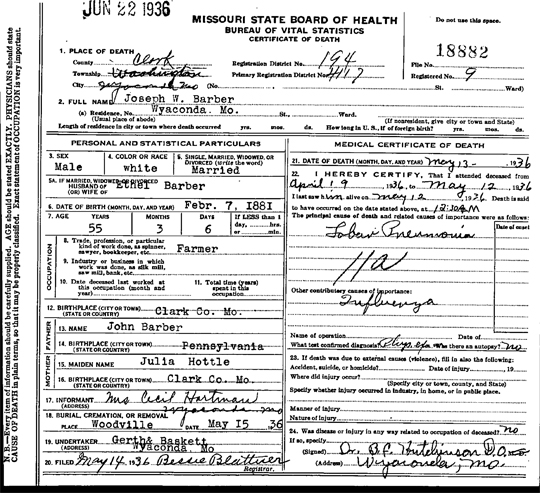 JUN 22 1936
MISSOURI STATE BOARD OF HEALTH
BUREAU OF VITAL STATISTICS
CERTIFICATE OF DEATH
Do not use this space.
18882
File No.
Registered No. 9
1. PLACE OF DEATH
County Clark
Registration District No. 194
Township Washington
Primary Registration District No. 4117
City Wyaconda Mo (No. St. Ward)
2. FULL NAME Joseph W. Barber
(a) Residence, No. Wyaconda. Mo. St., Ward.
(Usual place of abode) (If nonresident, give city or town and State)
Length of residence in city or town where death occurred yrs. mos. ds. How long in U. S., if of foreign birth? yrs. mos. ds.
PERSONAL AND STATISTICAL PARTICULARS
3. SEX Male
4. COLOR OR RACE white
5. SINGLE, MARRIED, WIDOWED, OR DIVORCED (write the word) Married
5A. IF MARRIED, WIDOWED, OR DIVORCED
HUSBAND OF (OR) WIFE OF Ethel Barber
6. DATE OF BIRTH (MONTH, DAY, AND YEAR) Febr. 7, 1881
7. AGE YEARS MONTHS DAYS If LESS than 1 day, hrs. or min.
55 3 6
OCCUPATION
8. Trade, profession, or particular kind of work done, as spinner, sawyer, bookkeeper, etc. Farmer
9. Industry or business in which work was done, as silk mill, saw mill, bank, etc.
10. Date deceased last worked at this occupation (month and year)
11. Total time (years) spent in this occupation
12. BIRTHPLACE (CITY OR TOWN) Clark Co. Mo.
(STATE OR COUNTRY)
FATHER
13. NAME John Barber
14. BIRTHPLACE (CITY OR TOWN) Pennsylvania
(STATE OR COUNTRY)
MOTHER
15. MAIDEN NAME Julia Hottle
16. BIRTHPLACE (CITY OR TOWN) Clark Co. Mo.
(STATE OR COUNTRY)
17. INFORMANT Mrs Cecil Hartman
(ADDRESS) Wyaconda Mo
18. BURIAL, CREMATION, OR REMOVAL
PLACE Woodville DATE May 15 36
19. UNDERTAKER Gerth & Baskett
(ADDRESS) Wyaconda. Mo
20. FILED May 14 1936 Bessie Blattner
Registrar.
MEDICAL CERTIFICATE OF DEATH
21. DATE OF DEATH (MONTH, DAY, AND YEAR) May 13 - 1936
22. I HEREBY CERTIFY, That I attended deceased from
April 9 1936, to May 12 1936
I last saw him alive on May 12 1936 Death is said
to have occurred on the date stated above, at
The principal cause of death and related causes of importance were as follows:
Date of onset
Lobar Pneumonia
11a
Other contributory causes of importance:
Influenza
Name of operation Date of
What test confirmed diagnosis? Was there an autopsy? no
23. If death was due to external causes (violence), fill in also the following:
Accident, suicide, or homicide? Date of injury 19
Where did injury occur?
(Specify city or town, county, and State)
Specify whether injury occurred in industry, in home, or in public place.
Manner of injury
Nature of injury
24. Was disease or injury in any way related to occupation of deceased? no
If so, specify
(Signed) Dr. B.F. Hutchinson D.O.
(Address) Wyaconda, Mo.
N. B.—Every item of information should be carefully supplied. AGE should be stated EXACTLY. PHYSICIANS should state
CAUSE OF DEATH in plain terms, so that it may be properly classified. Exact statement of OCCUPATION is very important.